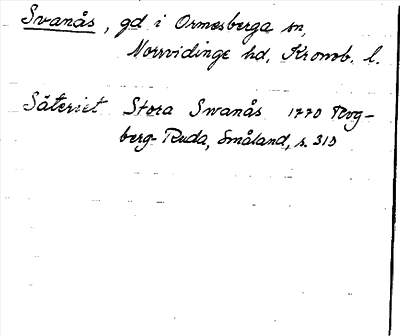 Svanås, gd i Ormesberga sn,
Norrvidinge hd, Kronob. l.
Säteriet Stora Swanås 1770 Rog-
berg-Ruda, Småland, s. 310